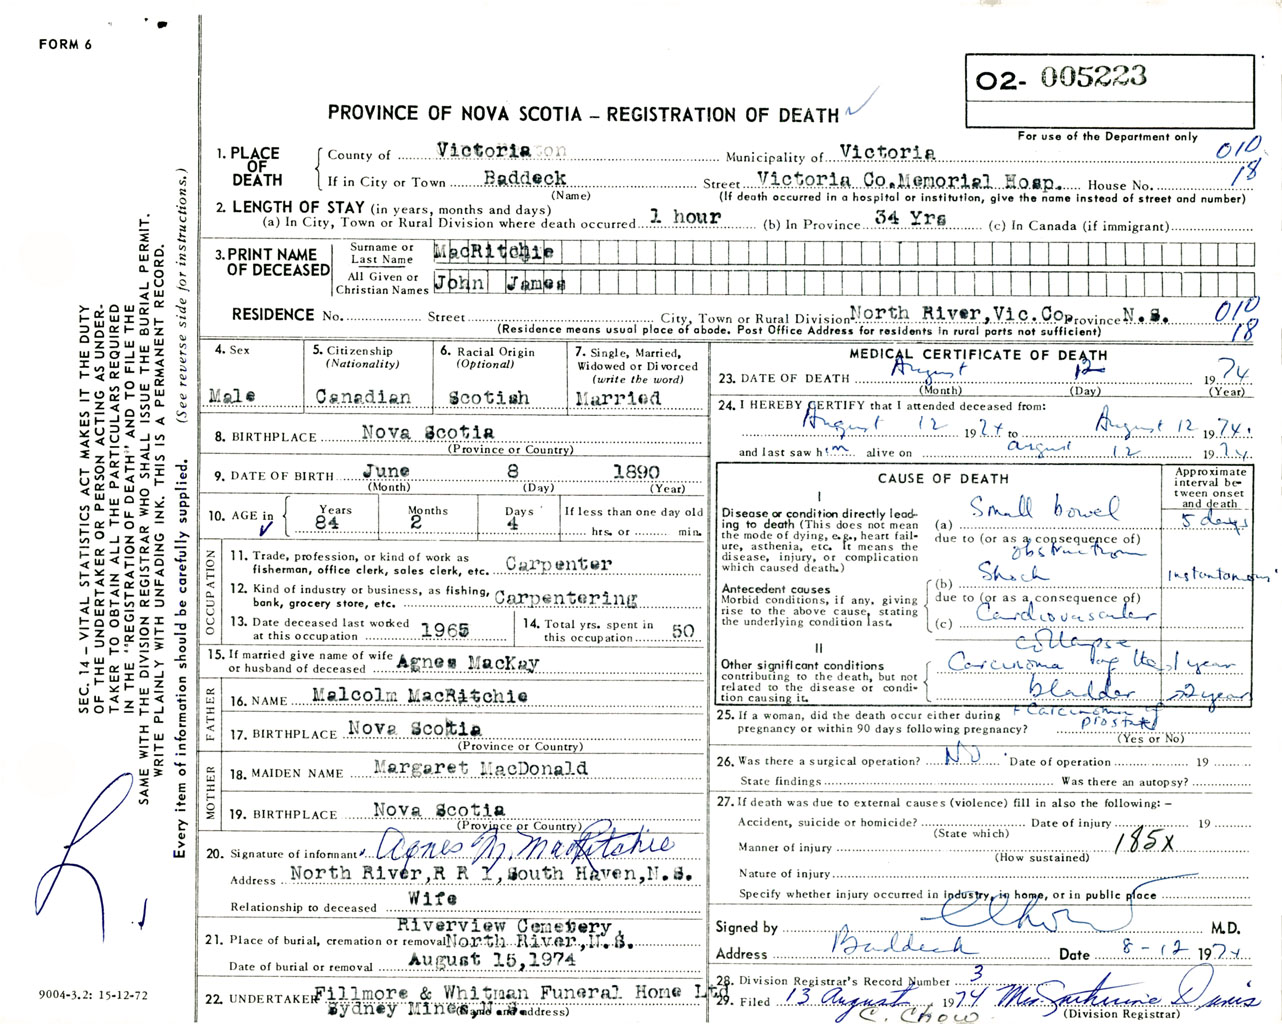 FORM 6
02- 005223
For use of the Department only
PROVINCE OF NOVA SCOTIA – REGISTRATION OF DEATH
010
18
1. PLACE OF DEATH
County of Victoria Municipality of Victoria
If in City or Town Baddeck Street Victoria Co.Memorial Hosp. House No.
(Name) (If death occurred in a hospital or institution, give the name instead of street and number)
2. LENGTH OF STAY (in years, months and days)
(a) In City, Town or Rural Division where death occurred 1 hour (b) In Province 34 Yrs (c) In Canada (if immigrant)
3. PRINT NAME OF DECEASED
Surname or Last Name MacRitchie
All Given or Christian Names John James
RESIDENCE No. Street City, Town or Rural Division North River,Vic.Co Province N.S.
(Residence means usual place of abode. Post Office Address for residents in rural parts not sufficient)
010
18
4. Sex
Male
5. Citizenship (Nationality)
Canadian
6. Racial Origin (Optional)
Scotish
7. Single, Married, Widowed or Divorced (write the word)
Married
8. BIRTHPLACE Nova Scotia
(Province or Country)
9. DATE OF BIRTH June 8 1890
(Month) (Day) (Year)
10. AGE in
Years Months Days If less than one day old
84 2 4 hrs. or min.
OCCUPATION
11. Trade, profession, or kind of work as fisherman, office clerk, sales clerk, etc. Carpenter
12. Kind of industry or business, as fishing, bank, grocery store, etc. Carpentering
13. Date deceased last worked at this occupation 1965
14. Total yrs. spent in this occupation 50
15. If married give name of wife or husband of deceased Agnes MacKay
FATHER
16. NAME Malcolm MacRitchie
17. BIRTHPLACE Nova Scotia
(Province or Country)
MOTHER
18. MAIDEN NAME Margaret MacDonald
19. BIRTHPLACE Nova Scotia
(Province or Country)
20. Signature of informant Agnes M. MacRitchie
Address North River,R R 1,South Haven,N.S.
Relationship to deceased Wife
Riverview Cemetery,
21. Place of burial, cremation or removal North River,N.S.
Date of burial or removal August 15,1974
22. UNDERTAKER Fillmore & Whitman Funeral Home Ltd
Sydney Mines,
(Name and address)
MEDICAL CERTIFICATE OF DEATH
23. DATE OF DEATH August 12 1974
(Month) (Day) (Year)
24. I HEREBY CERTIFY that I attended deceased from:
August 12 1974 to August 12 1974.
and last saw him alive on august 12 1974.
CAUSE OF DEATH
Approximate interval between onset and death
I
Disease or condition directly leading to death (This does not mean the mode of dying, e.g., heart failure, asthenia, etc. It means the disease, injury, or complication which caused death.)
(a) Small bowel 5 days
due to (or as a consequence of)
obstruction
Antecedent causes
Morbid conditions, if any, giving rise to the above cause, stating the underlying condition last.
(b) Shock instantaneous
due to (or as a consequence of)
(c) Cardiovascular
collapse
II
Other significant conditions contributing to the death, but not related to the disease or condition causing it.
Carcinoma of the 1 year
bladder 2 year
+ Carcinoma of
prostate
25. If a woman, did the death occur either during pregnancy or within 90 days following pregnancy?
(Yes or No)
26. Was there a surgical operation? NO Date of operation 19
State findings Was there an autopsy?
27. If death was due to external causes (violence) fill in also the following: –
Accident, suicide or homicide? Date of injury 19
(State which)
185X
Manner of injury
(How sustained)
Nature of injury
Specify whether injury occurred in industry, in home, or in public place
Signed by M.D.
Address Baddeck Date 8-12 1974
28. Division Registrar's Record Number 3
29. Filed 13 August 1974
C. CHOW (Division Registrar)
SEC. 14 – VITAL STATISTICS ACT MAKES IT THE DUTY
OF THE UNDERTAKER OR PERSON ACTING AS UNDER-
TAKER TO OBTAIN ALL THE PARTICULARS REQUIRED
IN THE "REGISTRATION OF DEATH" AND TO FILE THE
SAME WITH THE DIVISION REGISTRAR WHO SHALL ISSUE THE BURIAL PERMIT.
WRITE PLAINLY WITH UNFADING INK. THIS IS A PERMANENT RECORD.
Every item of information should be carefully supplied. (See reverse side for instructions.)
9004-3.2: 15-12-72